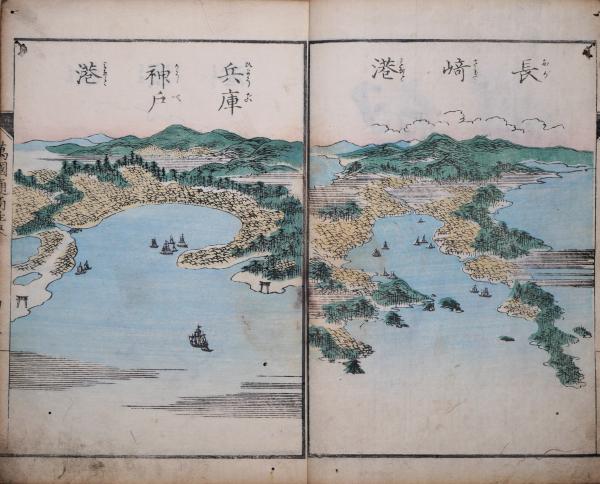 長﨑港
ながさきみなと
兵庫神戸港
ひやうごかうべみなと